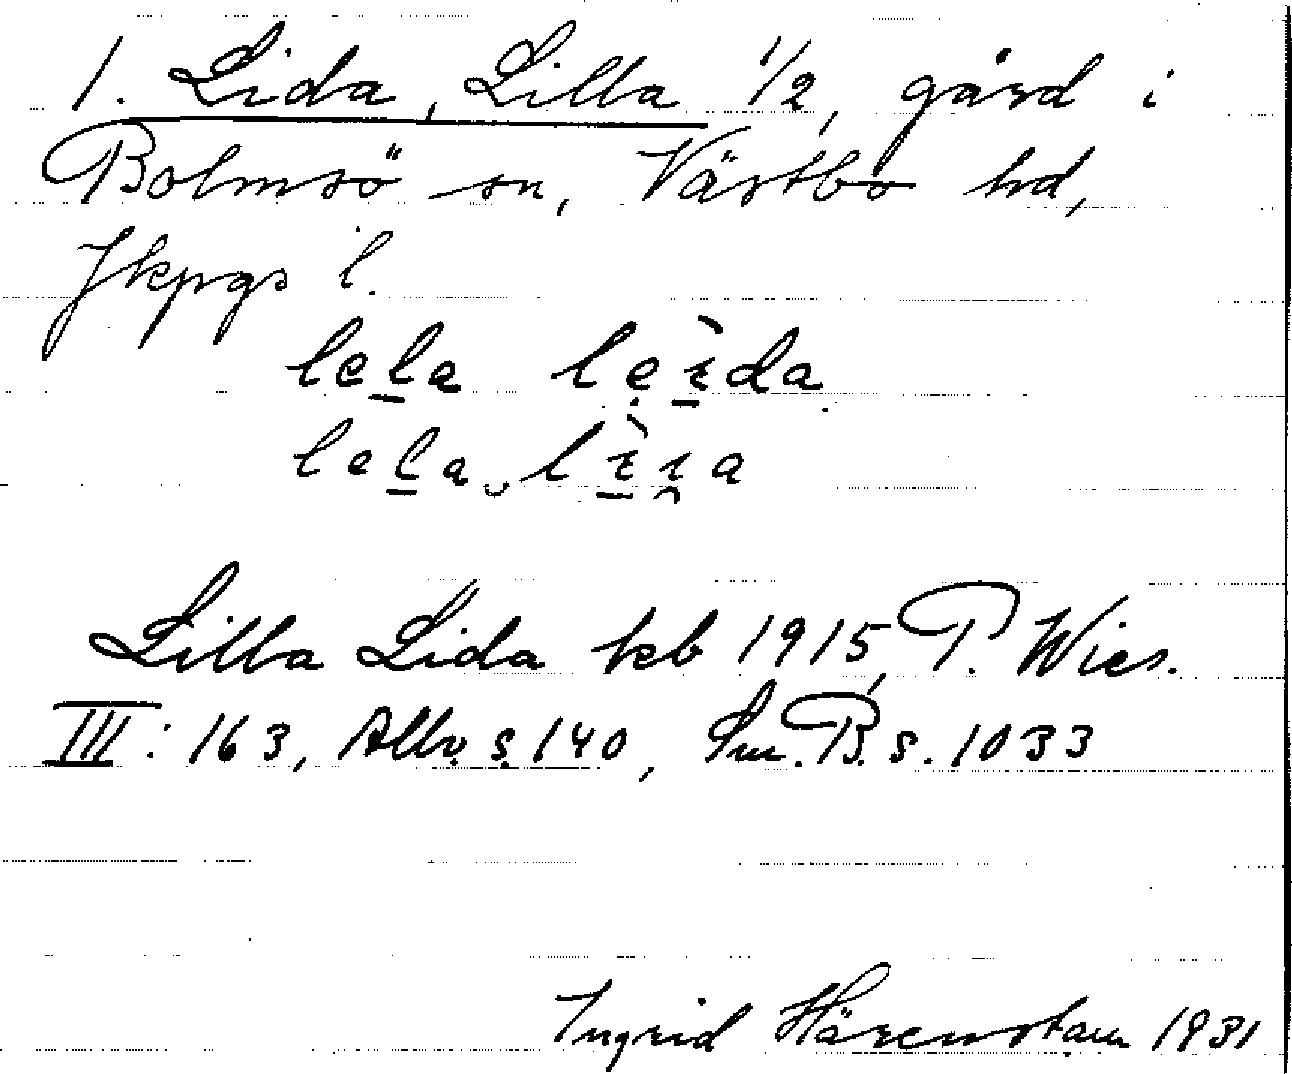 1. Lida, Lilla 1/2, gård i
Bolmsö sn, Västbo hd,
Jkpgs l.
lela leida
lela liia
Lilla Lida kb 1915, P. Wies.
III: 163, Allv. s. 140, Sm. B. s. 1033
Ingrid Härenstam 1931